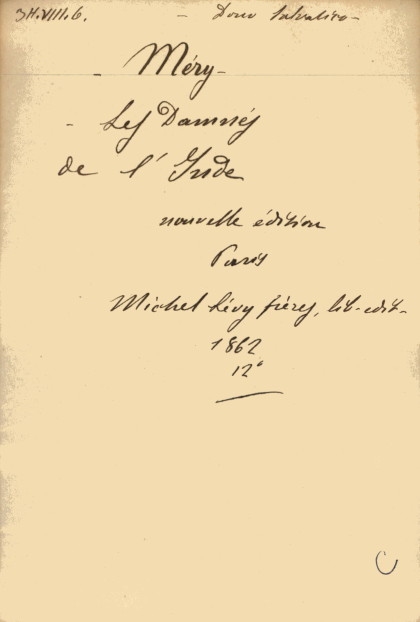 34.VIII.6. - Dono Salvatico -
- Méry -
- Les Damnés
de l'Inde
nouvelle édition
Paris
Michel Lévy frères, lib-edit-
1862
12°
C